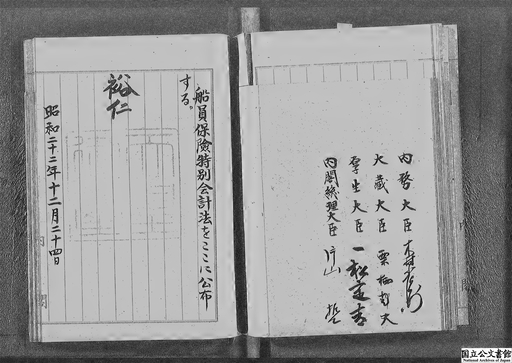 内務大臣 木村小左衛門
大蔵大臣 栗栖赳夫
厚生大臣 一松定吉
内閣総理大臣 片山 哲
船員保險特別会計法をここに公布
する。
裕仁
昭和二十二年十二月二十四日
内閣
国立公文書館
National Archives of Japan